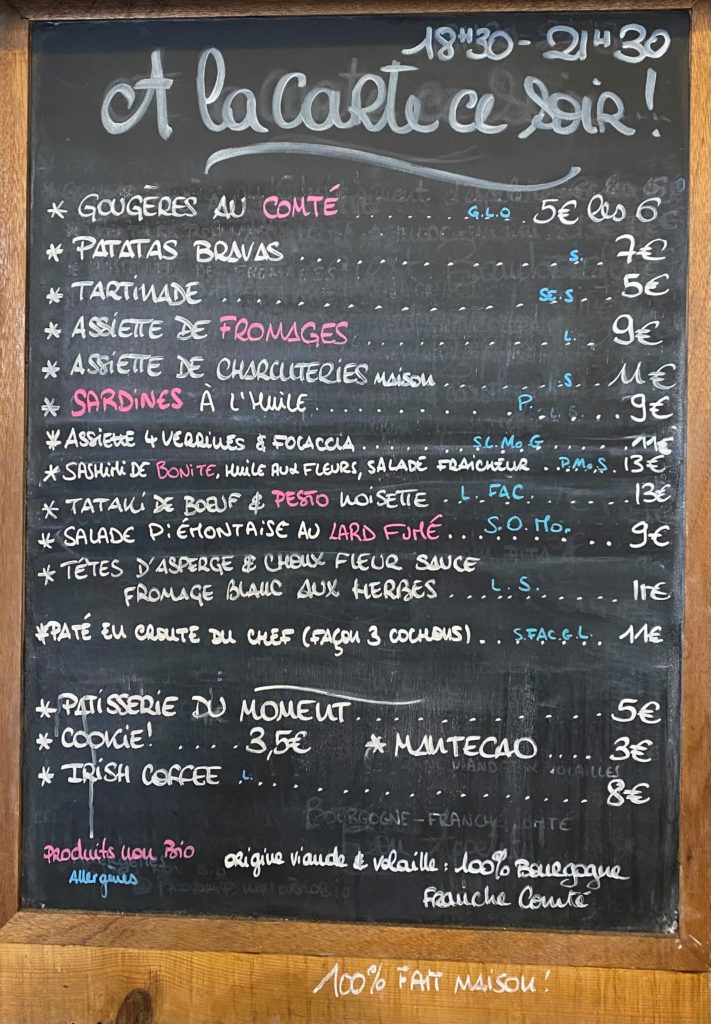 18H30 - 21H30
A la carte ce soir !
* GOUGÈRES AU COMTÉ ........ G.L.O 5€ les 6
* PATATAS BRAVAS ........ S. 7€
* TARTINADE ........ SE.S 5€
* ASSIETTE DE FROMAGES ........ L. 9€
* ASSIETTE DE CHARCUTERIES MAISON ........ S 11€
* SARDINES À L'HUILE ........ P. 9€
* ASSIETTE 4 VERRINES & FOCACCIA ........ S.L.Mo.G 11€
* SASHIMI DE BONITE, HUILE AUX FLEURS, SALADE FRAICHEUR .. P.Mo.S 13€
* TATAKI DE BOEUF & PESTO NOISETTE . L. FAC. ..... 13€
* SALADE PIÉMONTAISE AU LARD FUMÉ ..... S.O.Mo. 9€
* TÊTES D'ASPERGE & CHOUX FLEUR SAUCE
FROMAGE BLANC AUX HERBES ..... L. S. 11€
* PATÉ EN CROUTE DU CHEF (FAÇON 3 COCHONS) ... S.FAC.G.L. 11€
* PATISSERIE DU MOMENT ........ 5€
* COOKIE! ..... 3,5€ * MANTECAO .... 3€
* IRISH COFFEE L. ........ 8€
Produits non Bio
Allergènes
origine viande & volaille : 100% Bourgogne
Franche Comté
100% FAIT MAISON !